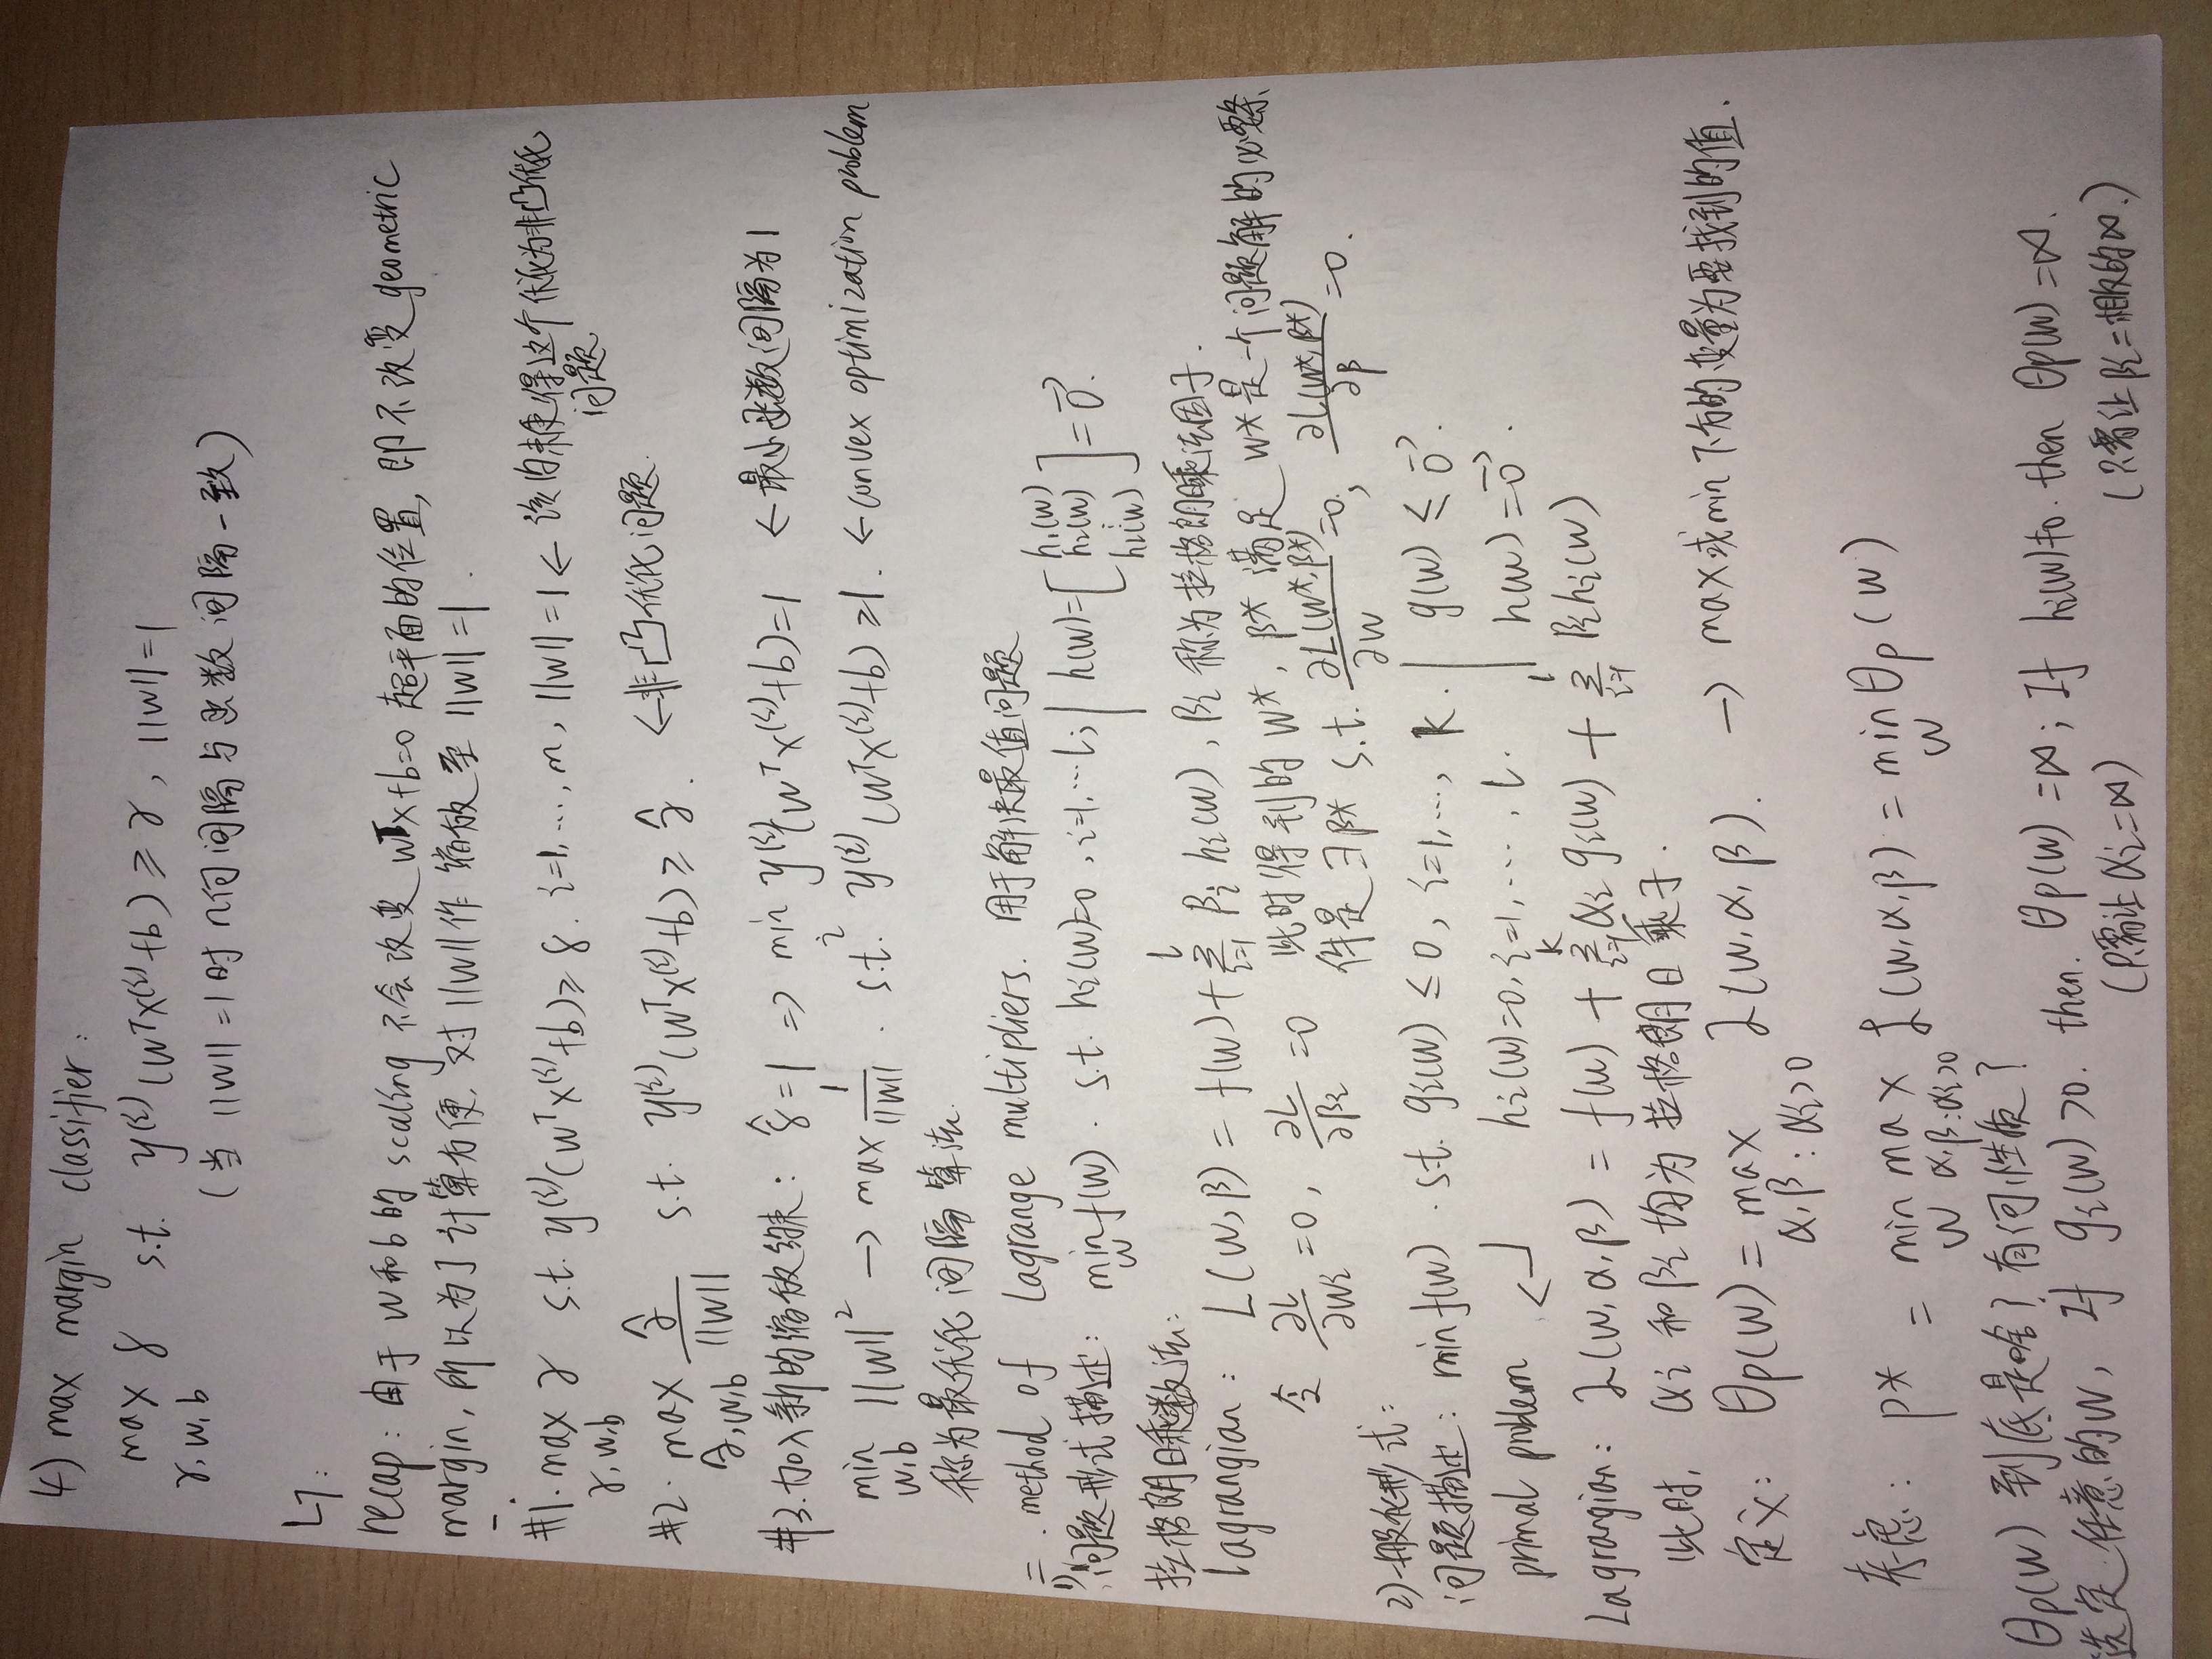 4) max margin classifier:
max γ s.t. y⁽ⁱ⁾(wᵀx⁽ⁱ⁾+b) ≥ γ, ||w||=1
γ,w,b
(当 ||w||=1时几何间隔与函数间隔一致)
L7:
recap: 由于 w和b的 scaling 不会改变 wᵀx+b=0 超平面的位置, 即不改变 geometric
margin, 所以为了计算方便, 对||w||作 缩放至 ||w||=1.
一.
#1. max γ s.t. y⁽ⁱ⁾(wᵀx⁽ⁱ⁾+b) ≥ γ. i=1,…,m, ||w||=1 ← 该约束使得这个优化为非凸优化
γ,w,b 问题
#2. max γ̂/||w|| s.t. y⁽ⁱ⁾(wᵀx⁽ⁱ⁾+b) ≥ γ̂. ←非凸优化问题.
γ̂,w,b
#3. 加入新的缩放约束: γ̂=1 => min y⁽ⁱ⁾(wᵀx⁽ⁱ⁾+b)=1 ← 最小函数间隔为1
i
min ||w||² → max 1/||w||. s.t. y⁽ⁱ⁾(wᵀx⁽ⁱ⁾+b) ≥1. ← convex optimization problem
w,b
称为最优化间隔算法.
二. method of Lagrange multipliers. 用于解决最值问题
1) 问题形式描述: min_w f(w). s.t. hᵢ(w)=0, i=1,…l; | h(w)=[h₁(w) h₂(w) ⋮ hₗ(w)]=0⃗.
拉格朗日乘数法:
Lagrangian: L(w,β) = f(w)+Σᵢ₌₁ˡ βᵢ hᵢ(w), βᵢ 称为拉格朗日乘法因子.
令 ∂L/∂wᵢ=0, ∂L/∂βᵢ=0 此时得到的 w*, β* 满足 w*是一个问题解的必要条
件是 ∃β* s.t. ∂L(w*,β*)/∂w=0, ∂L(w*,β*)/∂β=0.
2)一般化形式:
问题描述: min f(w). s.t. gᵢ(w) ≤ 0, i=1,…, k. | g(w) ≤ 0⃗.
primal problem ↵ hᵢ(w)=0, i=1,…, l. | h(w)=0⃗.
Lagrangian: ℒ(w,α,β) = f(w) + Σᵢ₌₁ᵏ αᵢ gᵢ(w) + Σᵢ₌₁ˡ βᵢhᵢ(w)
此时, αᵢ 和 βᵢ 均为拉格朗日乘子.
定义: θp(w) = max ℒ(w,α,β). → max或min下方的变量为要找到的值.
α,β: αᵢ>0
考虑: p* = min max ℒ(w,α,β) = min θp(w)
w α,β:αᵢ>0 w
θp(w) 到底是啥? 有何性质?
选定任意的w, If gᵢ(w) >0. then. θp(w) =∞; If hᵢ(w)≠0. then θp(w) =∞.
(只需让 αᵢ=∞) (只需让 βᵢ=相反的∞.)